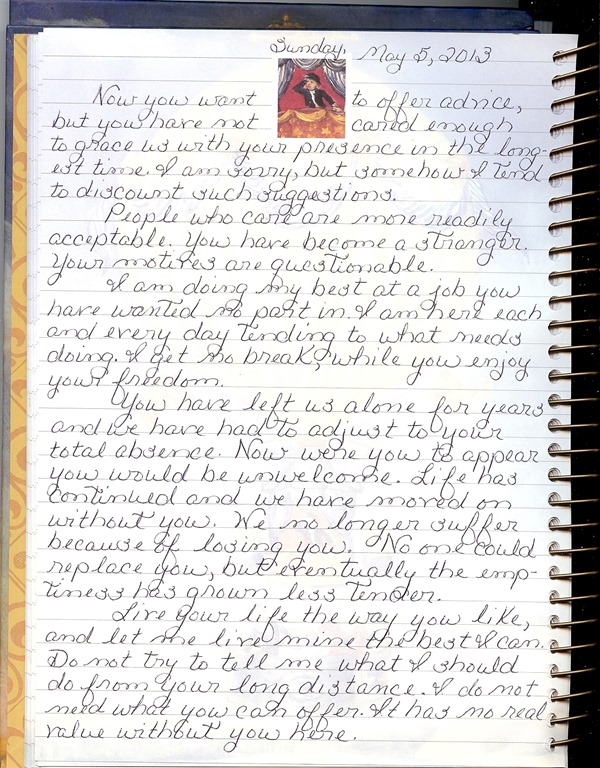 Sunday, May 5, 2013
Now you want to offer advice,
but you have not cared enough
to grace us with your presence in the long-
est time. I am sorry, but somehow I tend
to discount such suggestions.
People who care are more readily
acceptable. You have become a stranger.
Your motives are questionable.
I am doing my best at a job you
have wanted no part in. I am here each
and every day tending to what needs
doing. I get no break, while you enjoy
your freedom.
You have left us alone for years
and we have had to adjust to your
total absence. Now were you to appear
you would be unwelcome. Life has
continued and we have moved on
without you. We no longer suffer
because of losing you. No one could
replace you, but eventually the emp-
tiness has grown less tender.
Live your life the way you like,
and let me live mine the best I can.
Do not try to tell me what I should
do from your long distance. I do not
need what you can offer. It has no real
value without you here.